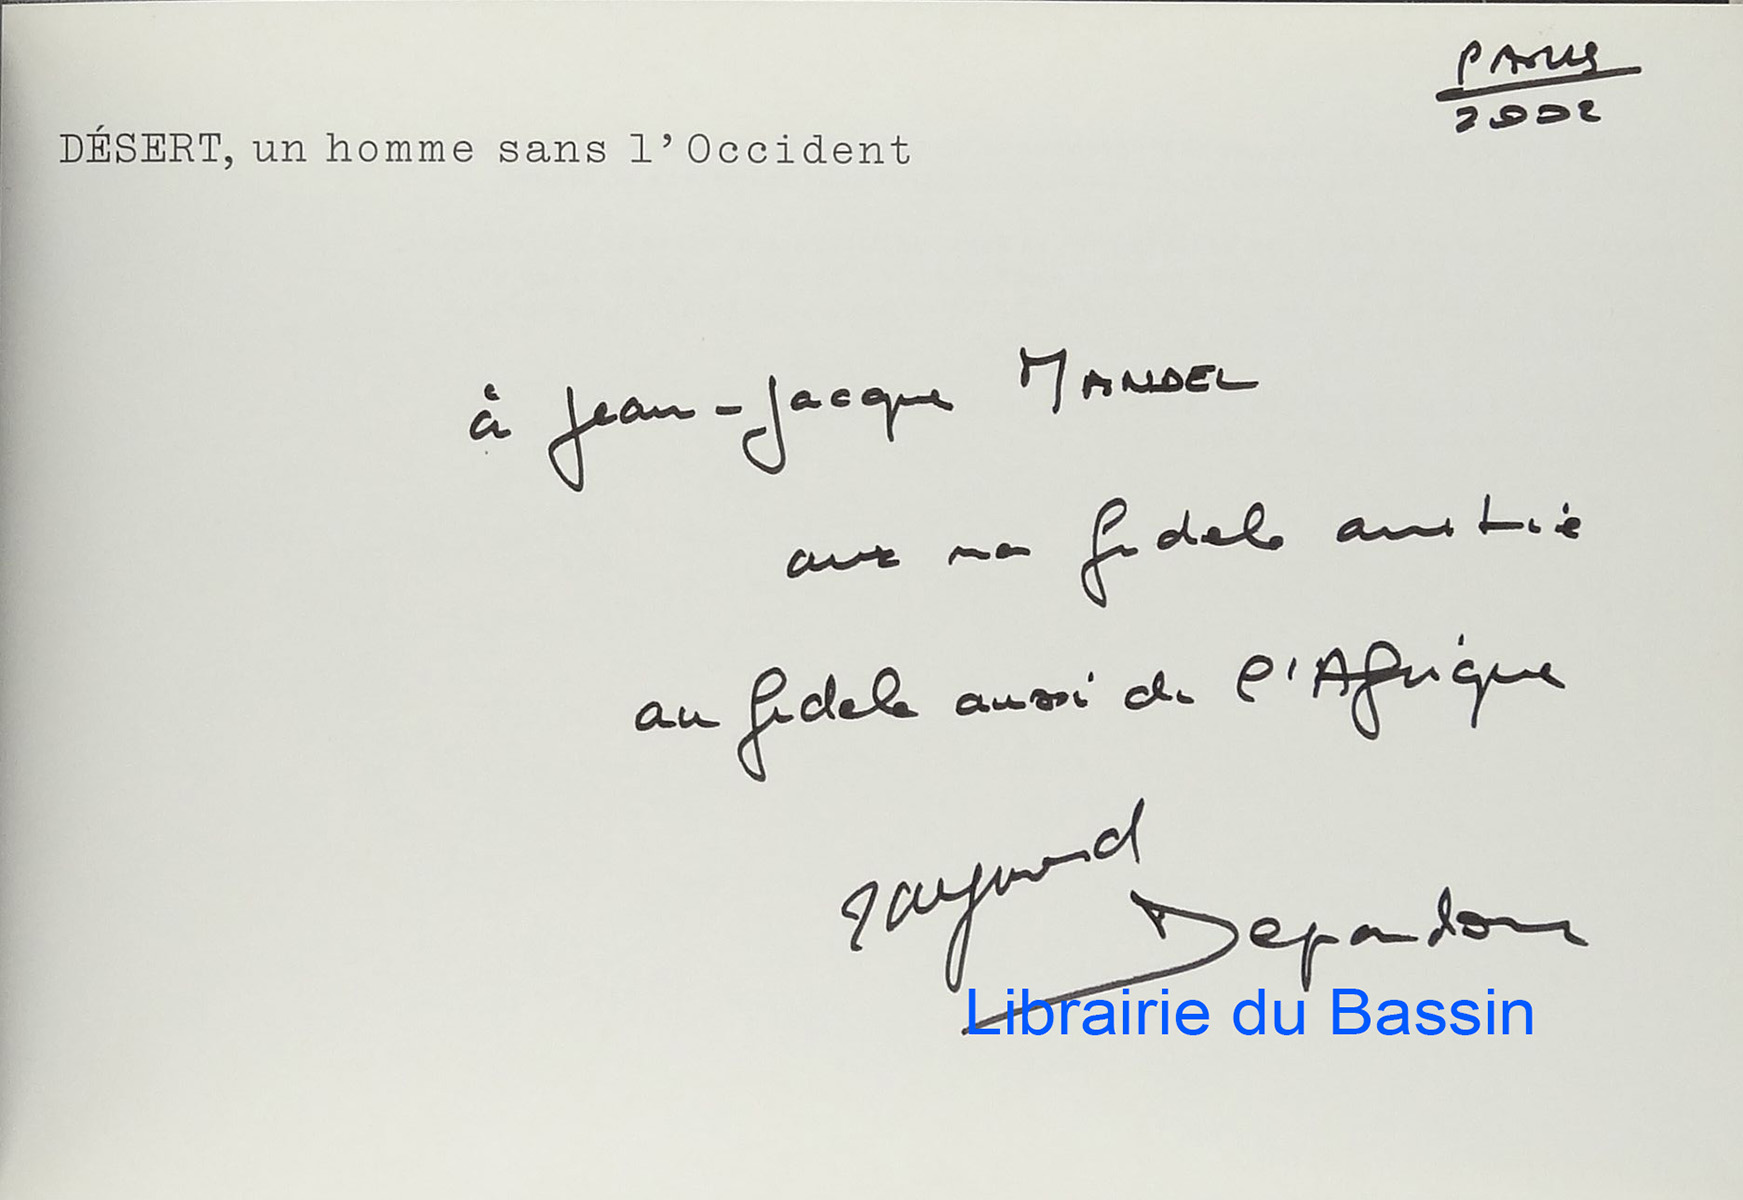 PARIS
2002
DÉSERT, un homme sans l'Occident
à Jean-Jacque MANDEL
avec ma fidele amitié
au fidele aussi de l'Afrique
Raymond
Depardon
Librairie du Bassin